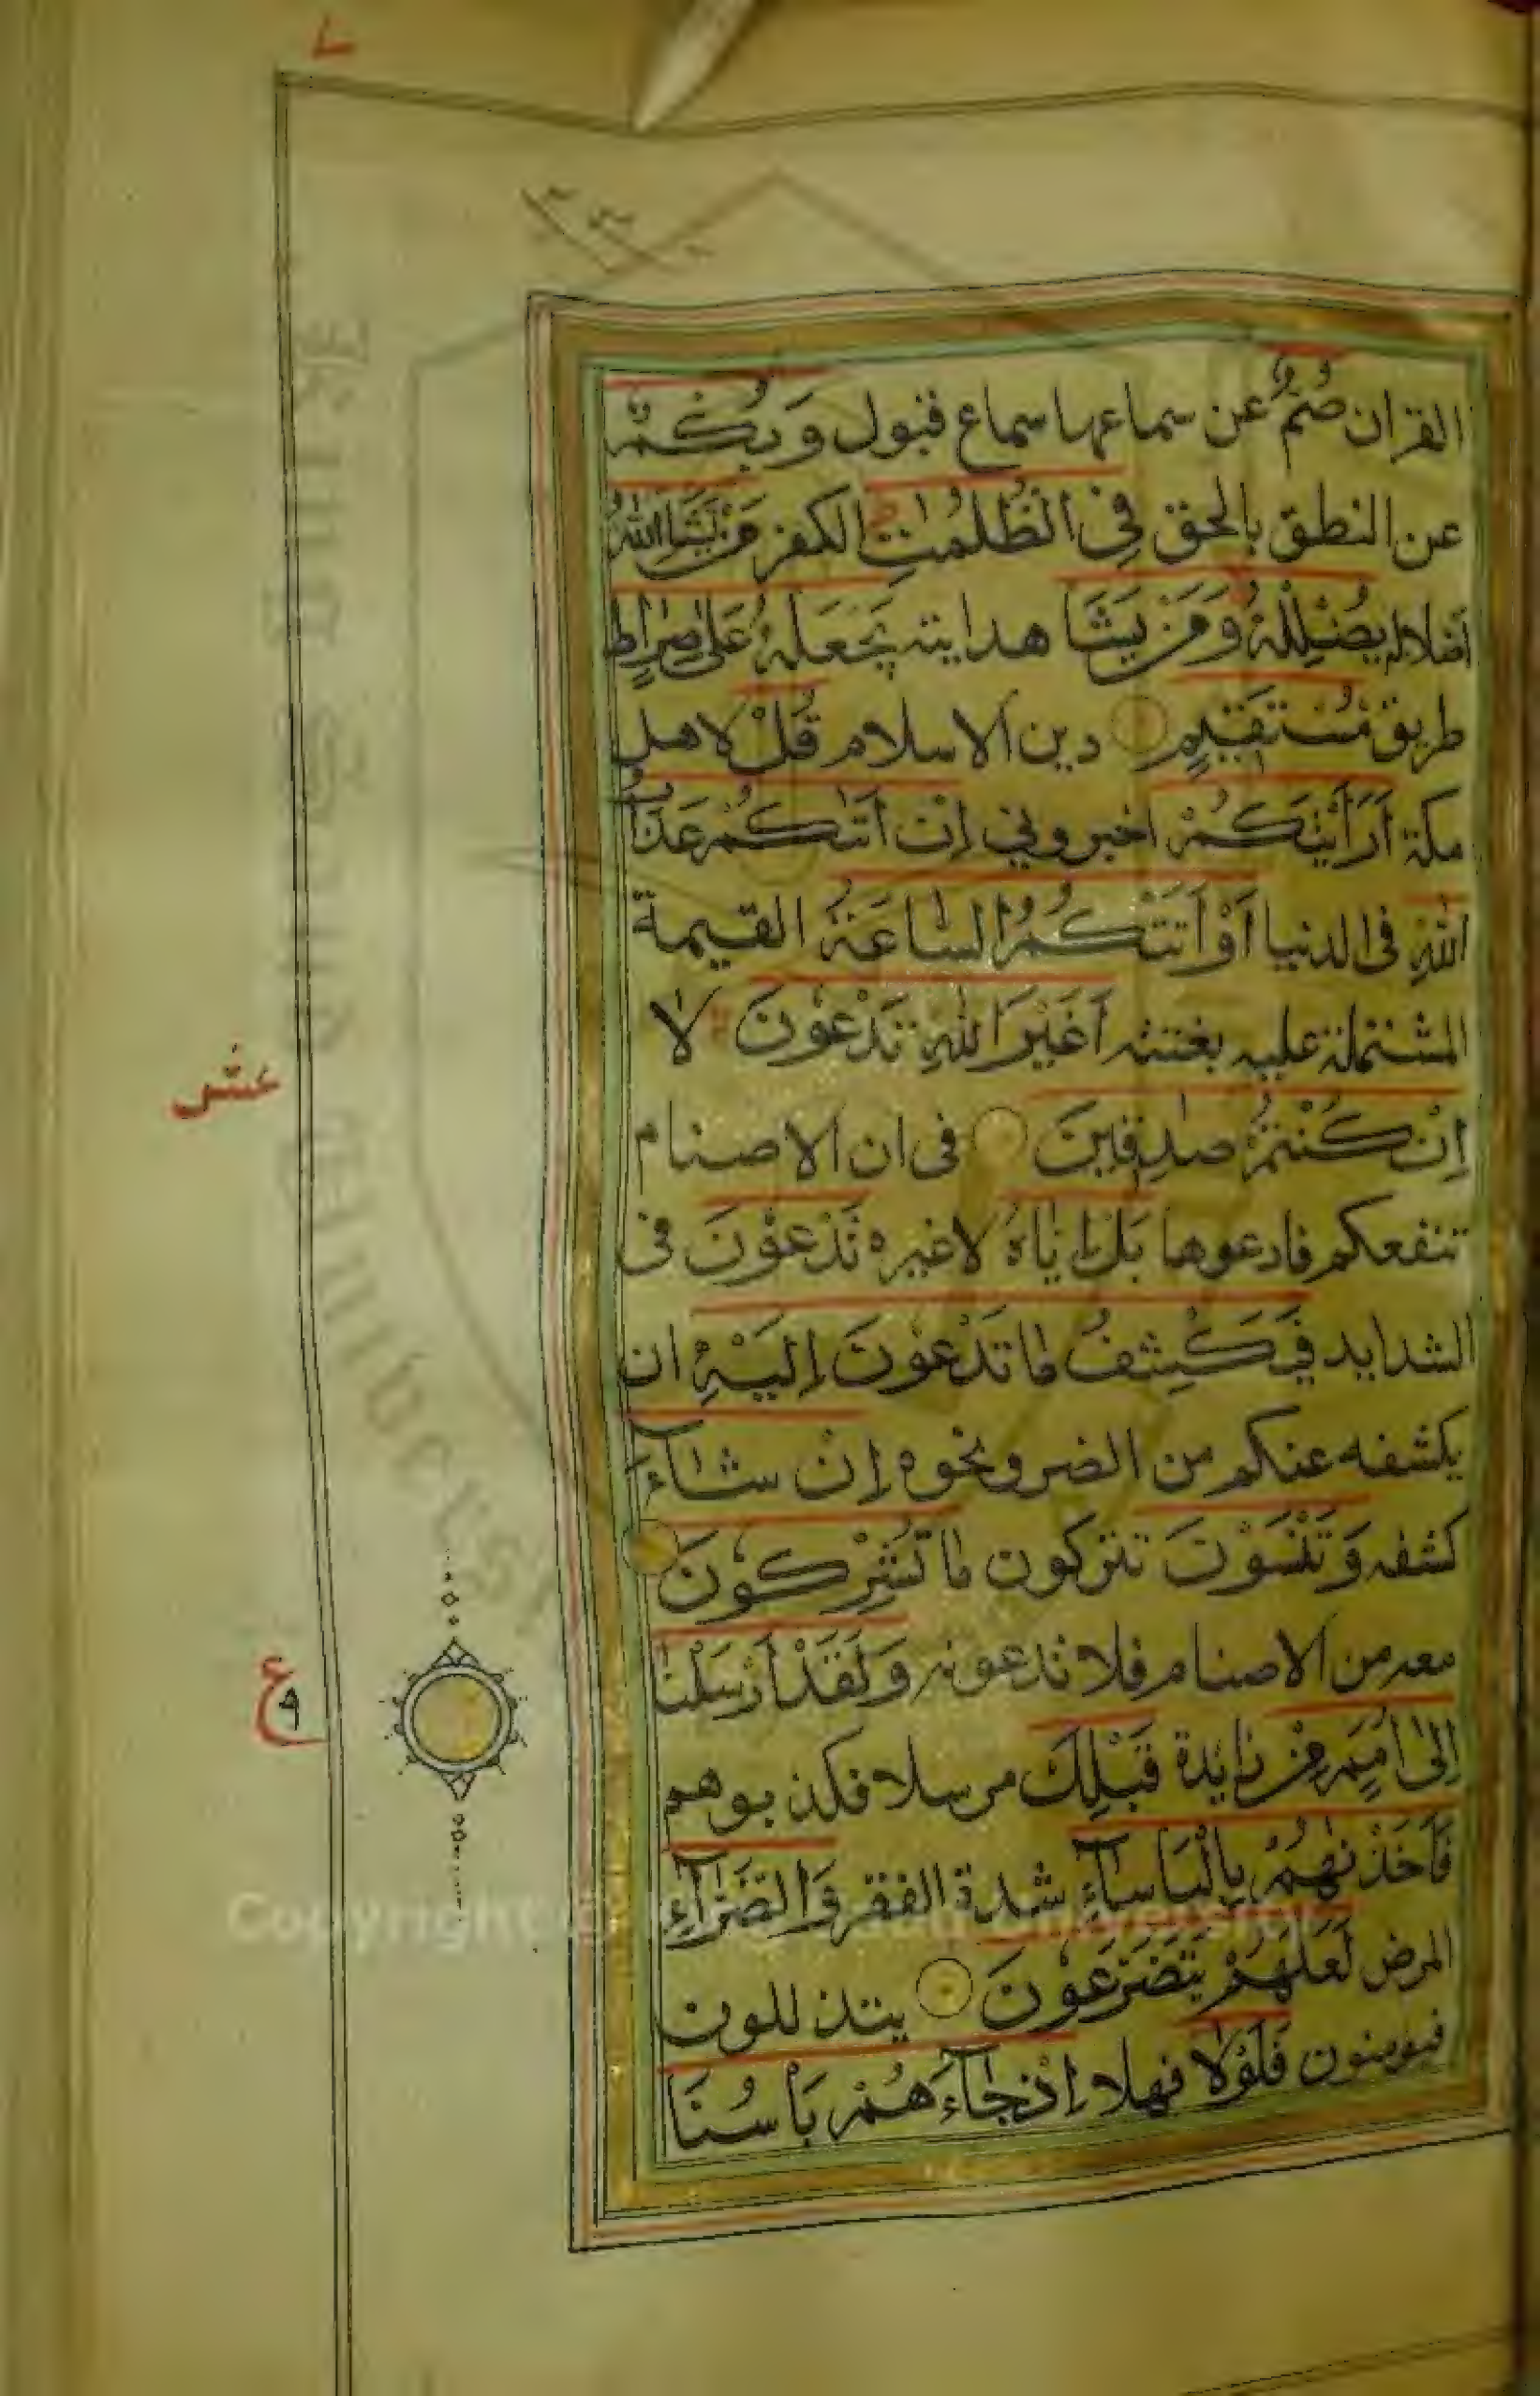 القران صُمٌّ عن سماعها سماع قبول وَبُكْمٌ
عن النطق بالحق فِي الظُّلُمٰتِ الكفر مَنْ يَشَاِ اللّٰهُ
اضلاله يُضْلِلْهُ وَمَنْ يَشَا هدايته يَجْعَلْهُ عَلٰى صِرَاطٍ
طريق مُسْتَقِيْمٍ دين الاسلام قُلْ لاهل
مكة اَرَاَيْتَكُمْ اخبروني اِنْ اَتٰىكُمْ عَذَابُ
اللّٰهِ فى الدنيا اَوْ اَتَتْكُمُ السَّاعَةُ القيمة
المشتملة عليه بغتة اَغَيْرَ اللّٰهِ تَدْعُوْنَ لا
اِنْ كُنْتُمْ صٰدِقِيْنَ فى ان الاصنام
تنفعكم فادعوها بَلْ اِيَّاهُ لاغيره تَدْعُوْنَ فى
الشدايد فَيَكْشِفُ مَا تَدْعُوْنَ اِلَيْهِ ان
يكشفه عنكم من الضر ونحوه اِنْ شَآءَ
كشفه وَتَنْسَوْنَ تتركون مَا تُشْرِكُوْنَ
معه من الاصنام فلا تدعونه وَلَقَدْ اَرْسَلْنَا
اِلٰى اُمَمٍ مِّنْ زايدة قَبْلِكَ مرسلا فكذبوهم
فَاَخَذْنٰهُمْ بِالْبَاْسَآءِ شدة الفقر وَالضَّرَّآءِ
المرض لَعَلَّهُمْ يَتَضَرَّعُوْنَ يتذللون
فيومنون فَلَوْلَا فهلا اِذْ جَآءَهُمْ بَاْسُنَا
عشر
ع
٩
Copyright © King Saud University
King Saud University